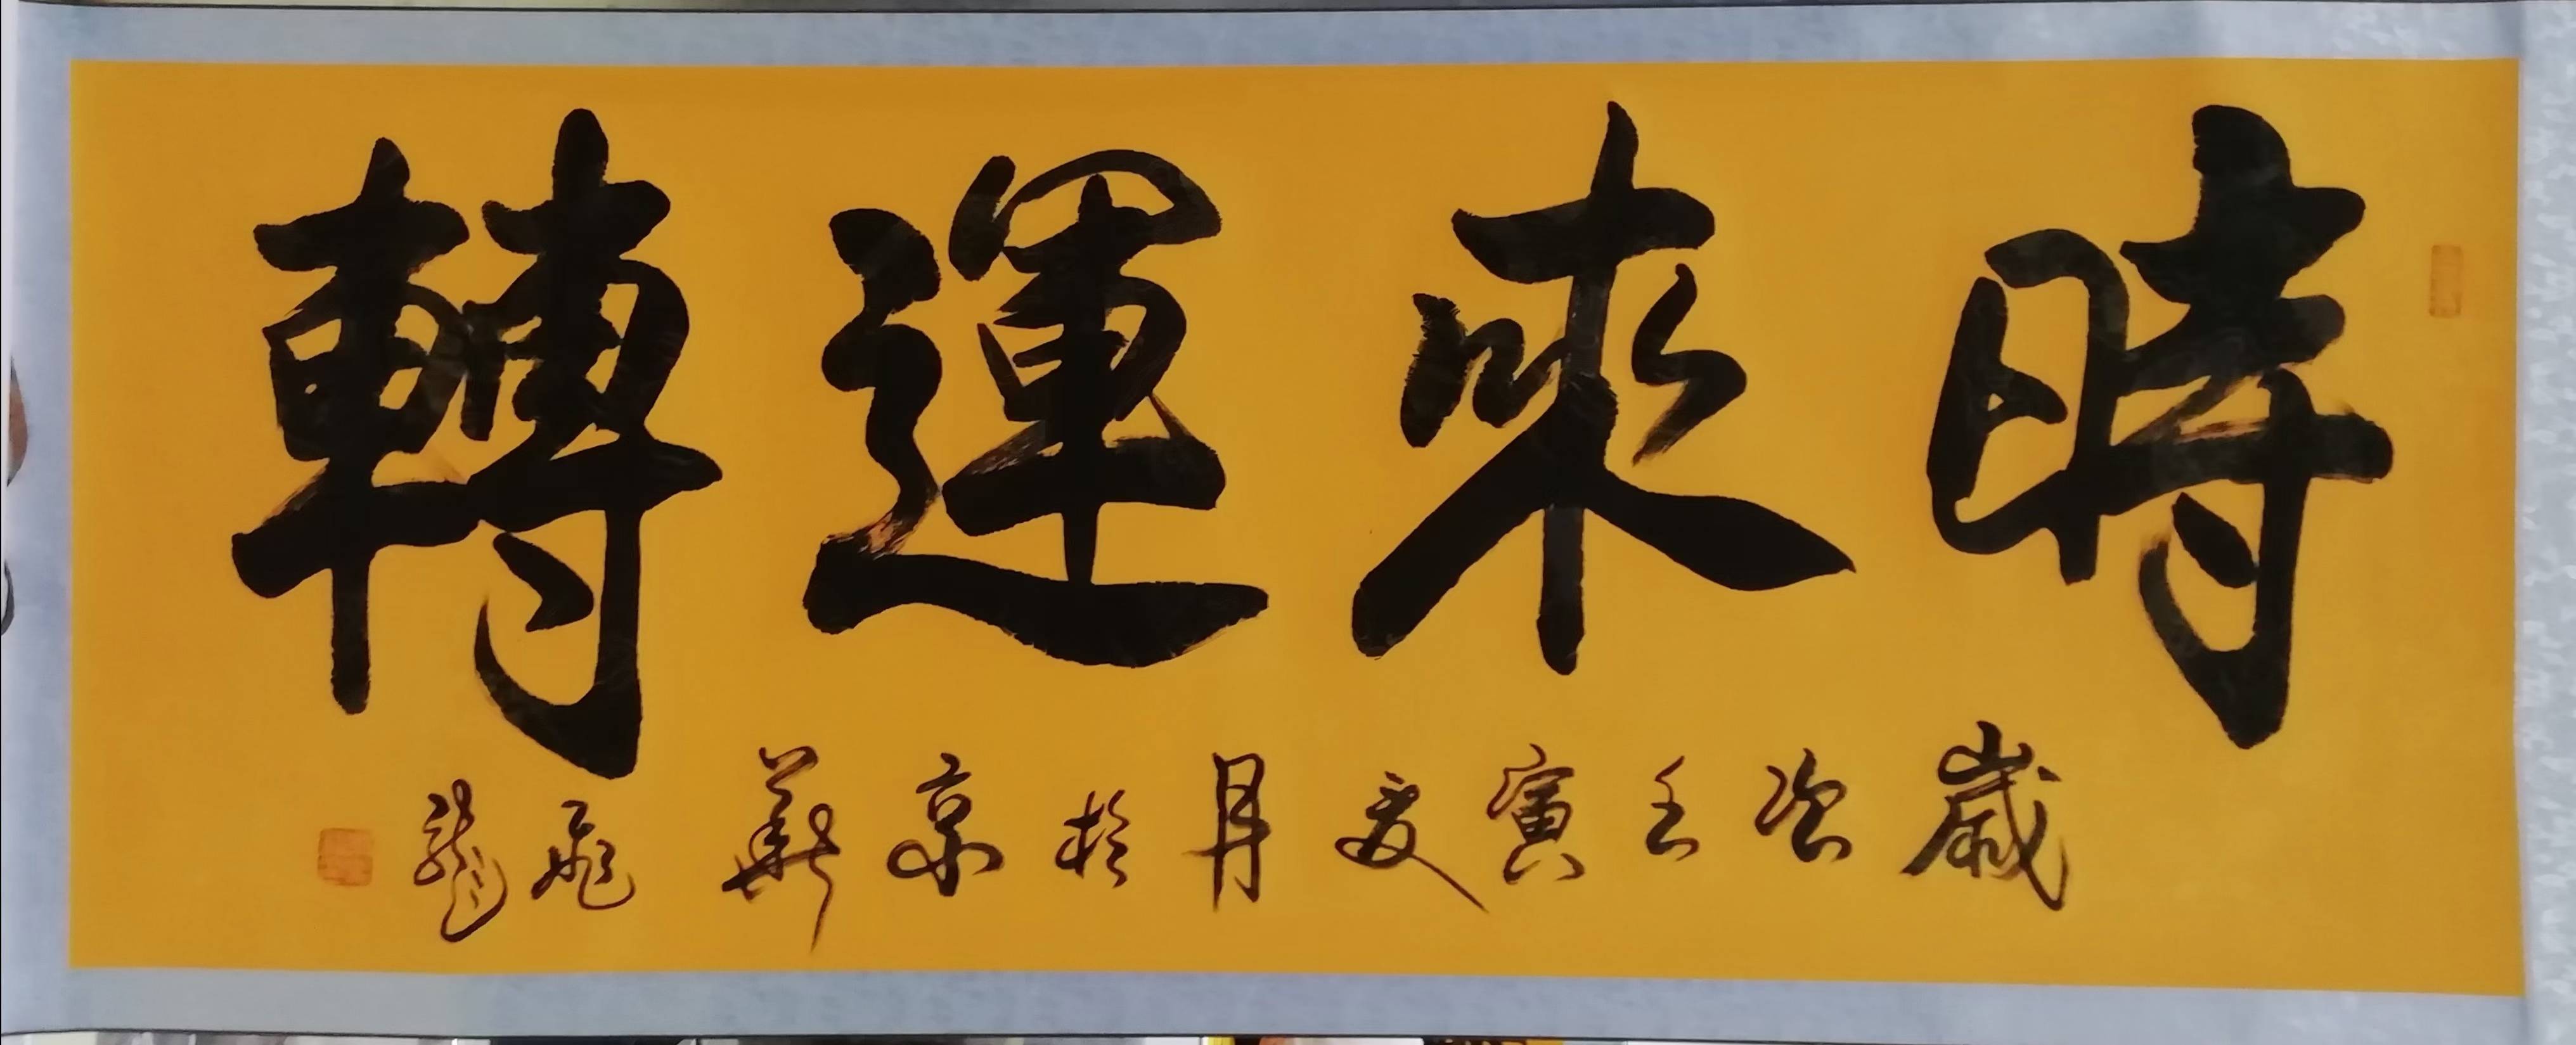 時來運轉
歲次壬寅夏月於京華飛龍